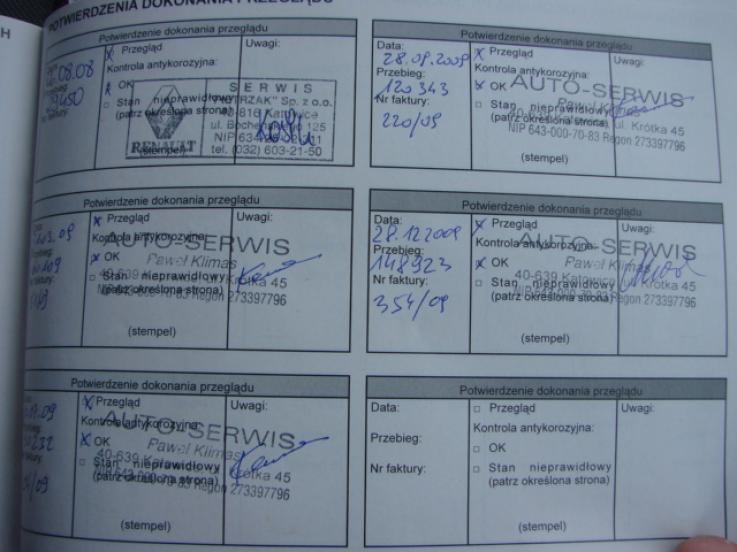 POTWIERDZENIA DOKONANIA PRZEGLĄDU
H
Potwierdzenie dokonania przeglądu
08.08
Przegląd
Uwagi:
Kontrola antykorozyjna:
x OK
Stan nieprawidłowy
(patrz określona strona)
(stempel)
RENAULT
SERWIS
"PIETRZAK" Sp. z o.o.
40-816 Katowice
ul. Bocheńskiego 125
tel. (032) 603-21-50
Potwierdzenie dokonania przeglądu
Data:
28.09.2009
Przebieg:
120 343
Nr faktury:
220/09
x Przegląd
Uwagi:
Kontrola antykorozyjna:
x OK
Stan nieprawidłowy
(patrz określona strona)
(stempel)
AUTO-SERWIS
Paweł Klimas
40-639 Katowice, ul. Krótka 45
NIP 643-000-70-83 Regon 273397796
Potwierdzenie dokonania przeglądu
03.09
x Przegląd
Uwagi:
Kontrola antykorozyjna:
x OK
Stan nieprawidłowy
(patrz określona strona)
(stempel)
AUTO-SERWIS
Paweł Klimas
40-639 Katowice, ul. Krótka 45
NIP 643-000-70-83 Regon 273397796
Potwierdzenie dokonania przeglądu
Data:
28.12.2009
Przebieg:
148923
Nr faktury:
354/09
x Przegląd
Uwagi:
Kontrola antykorozyjna:
x OK
Stan nieprawidłowy
(patrz określona strona)
(stempel)
AUTO-SERWIS
Paweł Klimas
40-639 Katowice, ul. Krótka 45
NIP 643-000-70-83 Regon 273397796
Potwierdzenie dokonania przeglądu
x Przegląd
Uwagi:
Kontrola antykorozyjna:
x OK
Stan nieprawidłowy
(patrz określona strona)
(stempel)
AUTO-SERWIS
Paweł Klimas
40-639 Katowice, ul. Krótka 45
NIP 643-000-70-83 Regon 273397796
Potwierdzenie dokonania przeglądu
Data:
Przebieg:
Nr faktury:
Przegląd
Uwagi:
Kontrola antykorozyjna:
OK
Stan nieprawidłowy
(patrz określona strona)
(stempel)